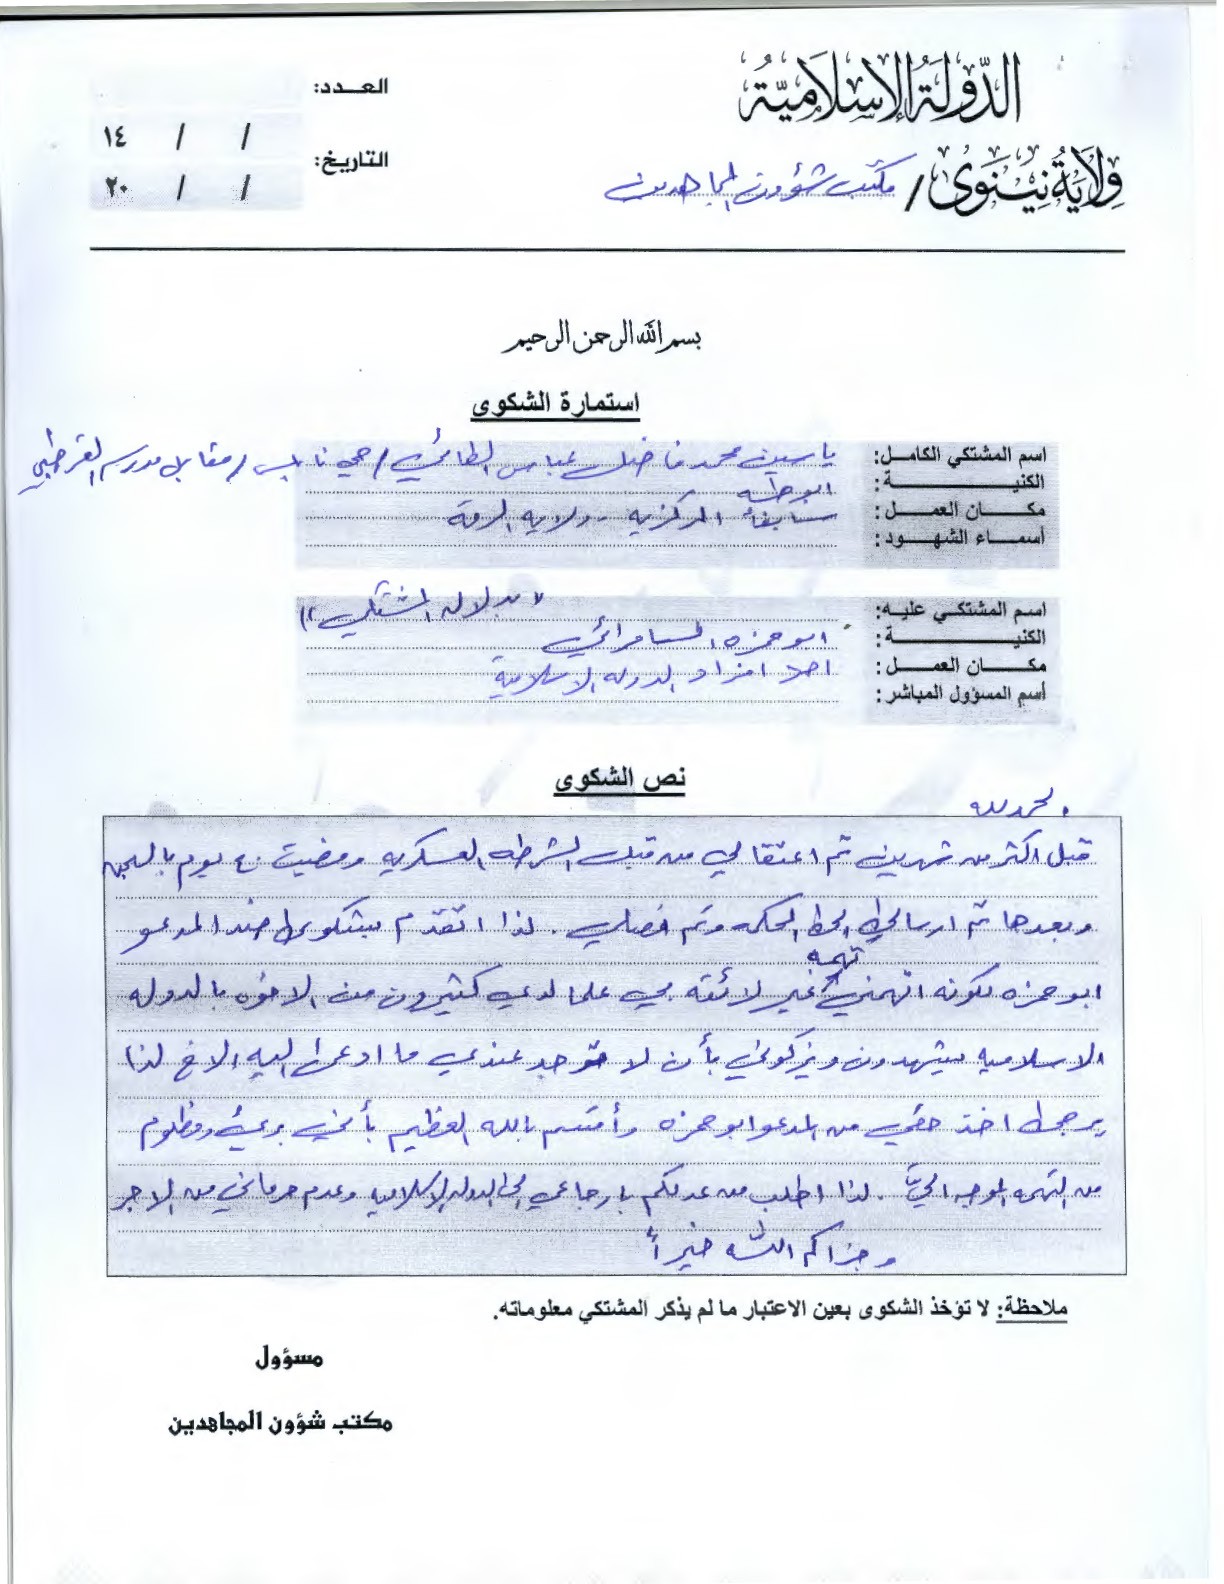 الدولة الإسلامية
ولاية نينوى / مكتب شؤون المجاهدين
العدد:
التاريخ: / / ١٤
/ / ٢٠
بسم الله الرحمن الرحيم
استمارة الشكوى
اسم المشتكي الكامل: ياسين محمد فاضل عباس الطائي / حي نابلس / مقابل مدرسه القرطبي
الكنية: ابو طه
مكان العمل: سابقاً المركزيه - ولايه الرقة
أسماء الشهود:
اسم المشتكي عليه: " بدلاله المشتكي "
الكنية: ابو حمزه السامرائي
مكان العمل: احد افراد الدوله الاسلامية
أسم المسؤول المباشر:
نص الشكوى
الحمد لله
قبل اكثر من شهرين تم اعتقالي من قبل الشرطه العسكريه ومضيت ٤٠ يوم بالسجن
وبعدها تم ارسالي الى المحكمه وتم فصلي . لذا اتقدم بشكوى ضد المدعو
ابو حمزه لكونه اتهمني تهمه غير لائقه بي علما لدي كثيرون من الاخوه بالدوله
الاسلاميه يشهدون ويزكوني بأن لا توجد عندي ما ادعى اليه الاخ لذا
يرجى اخذ حقي من المدعو ابو حمزه وأقسم بالله العظيم بأنني بريء ومظلوم
من التهمه الموجه اليّ . لذا اطلب من عدلكم بارجاعي الى الدوله الاسلاميه وعدم حرماني من الاجر
وجزاكم الله خيراً
ملاحظة: لا تؤخذ الشكوى بعين الاعتبار ما لم يذكر المشتكي معلوماته.
مسؤول
مكتب شؤون المجاهدين